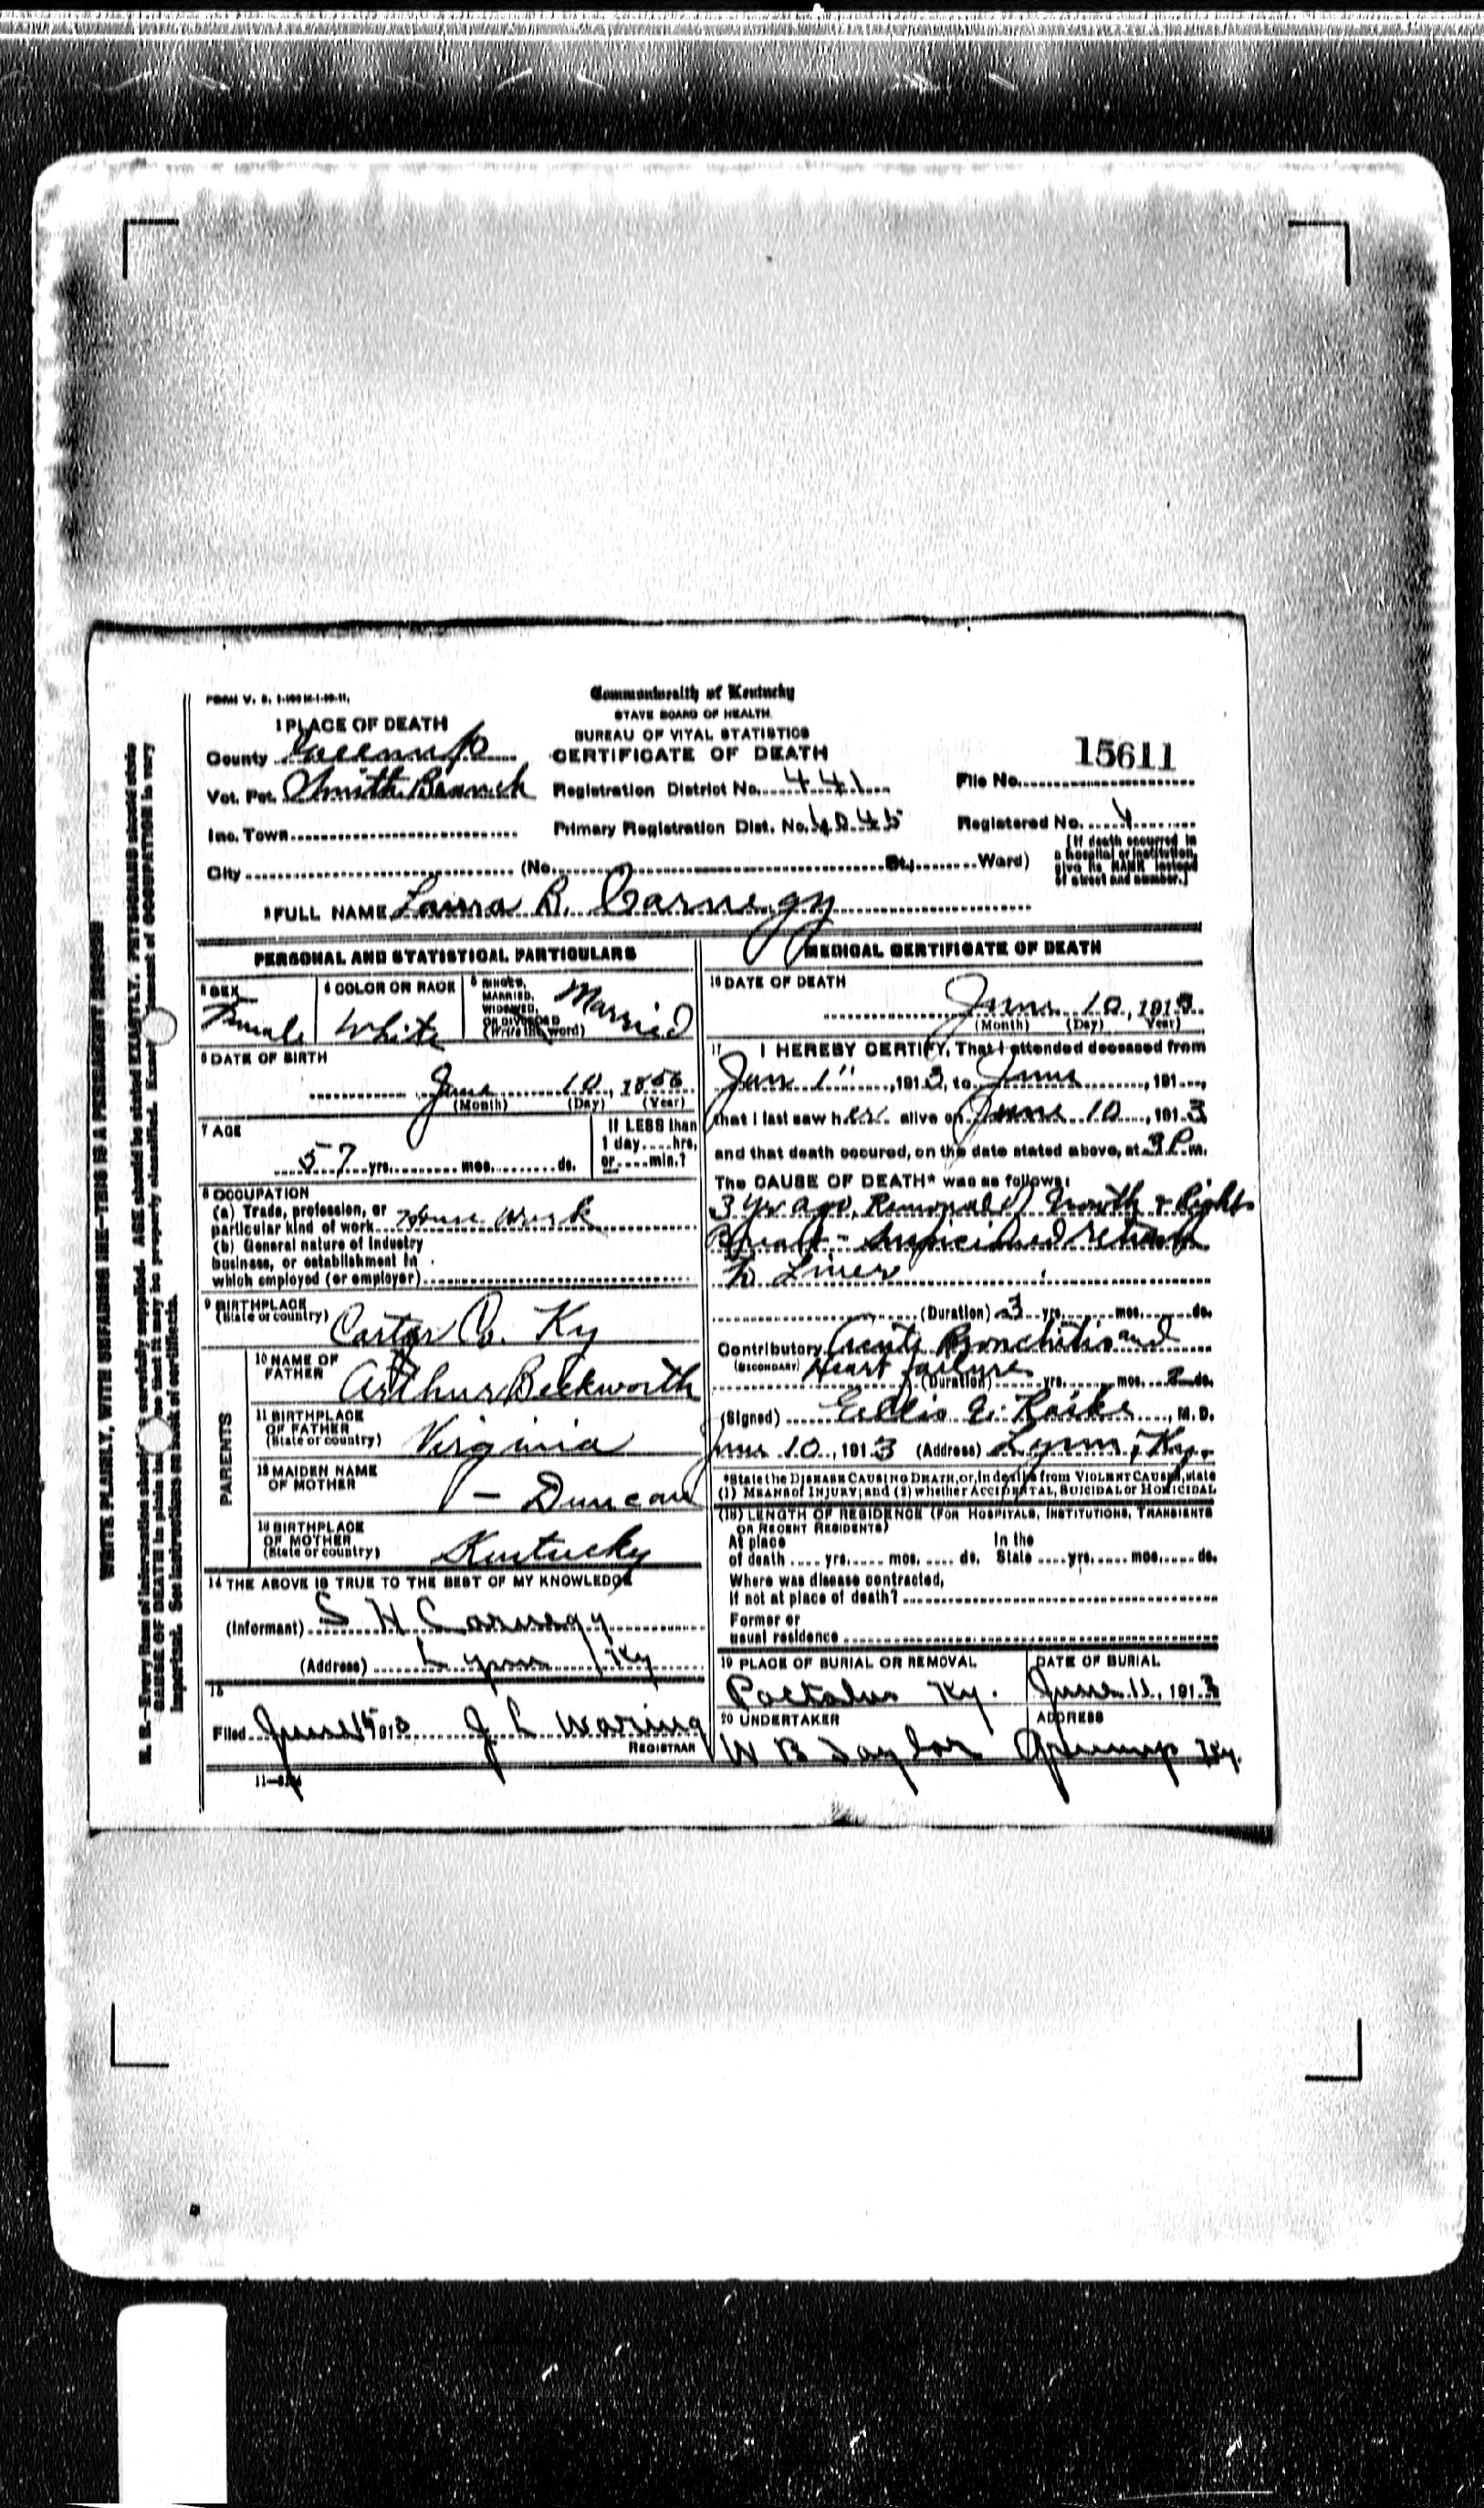 FORM V. S. 1-100 M-1-10-11.
Commonwealth of Kentucky
STATE BOARD OF HEALTH
BUREAU OF VITAL STATISTICS
CERTIFICATE OF DEATH
1 PLACE OF DEATH
County Greenup
Vot. Pct. Smith Branch Registration District No. 441 File No. 15611
Inc. Town Primary Registration Dist. No. 4045 Registered No. 4
City (No. St., Ward)
[If death occurred in
a hospital or institution,
give its NAME instead
of street and number.]
2 FULL NAME Laura B. Carnegy
PERSONAL AND STATISTICAL PARTICULARS
3 SEX
Female
4 COLOR OR RACE
White
5 SINGLE,
MARRIED,
WIDOWED,
OR DIVORCED
(Write the word)
Married
6 DATE OF BIRTH
June 10, 1856
(Month) (Day) (Year)
7 AGE
57 yrs. mos. ds.
If LESS than
1 day hrs.
or min.?
8 OCCUPATION
(a) Trade, profession, or
particular kind of work House Work
(b) General nature of industry
business, or establishment in
which employed (or employer)
9 BIRTHPLACE
(State or country) Carter Co. Ky
PARENTS
10 NAME OF
FATHER Arthur Beckworth
11 BIRTHPLACE
OF FATHER
(State or country) Virginia
12 MAIDEN NAME
OF MOTHER – Duncan
13 BIRTHPLACE
OF MOTHER
(State or country) Kentucky
14 THE ABOVE IS TRUE TO THE BEST OF MY KNOWLEDGE
(Informant) S H Carnegy
(Address) Lynn Ky
15
Filed June 15 1913 J L Waring
REGISTRAR
MEDICAL CERTIFICATE OF DEATH
16 DATE OF DEATH
June 10, 1913
(Month) (Day) Year)
17 I HEREBY CERTIFY, That I attended deceased from
Jan 1", 1913, to June, 191
that I last saw her alive on June 10, 1913
and that death occured, on the date stated above, at 9 P.m.
The CAUSE OF DEATH* was as follows:
3 yr ago, Removal of Growth & Right
Breast - return
to Liver
(Duration) 3 yrs. mos. ds.
Contributory Acute Bronchitis and
(SECONDARY) Heart failure
(Duration) yrs. mos. 2 ds.
(Signed) Ellis E. Raike, M. D.
June 10, 1913 (Address) Lynn, Ky.
*State the DISEASE CAUSING DEATH, or, in deaths from VIOLENT CAUSES, state
(1) MEANS OF INJURY; and (2) whether ACCIDENTAL, SUICIDAL or HOMICIDAL
(18) LENGTH OF RESIDENCE (FOR HOSPITALS, INSTITUTIONS, TRANSIENTS
OR RECENT RESIDENTS)
At place In the
of death yrs. mos. ds. State yrs. mos. ds.
Where was disease contracted,
If not at place of death?
Former or
usual residence
19 PLACE OF BURIAL OR REMOVAL
Pactolus Ky.
DATE OF BURIAL
June 11, 1913
20 UNDERTAKER
W B Taylor
ADDRESS
Greenup Ky.
WRITE PLAINLY, WITH UNFADING INK—THIS IS A PERMANENT RECORD
N. B.—Every item of information should be carefully supplied. AGE should be stated EXACTLY. PHYSICIANS should state
CAUSE OF DEATH in plain terms, so that it may be properly classified. Exact statement of OCCUPATION is very
important. See instructions on back of certificate.